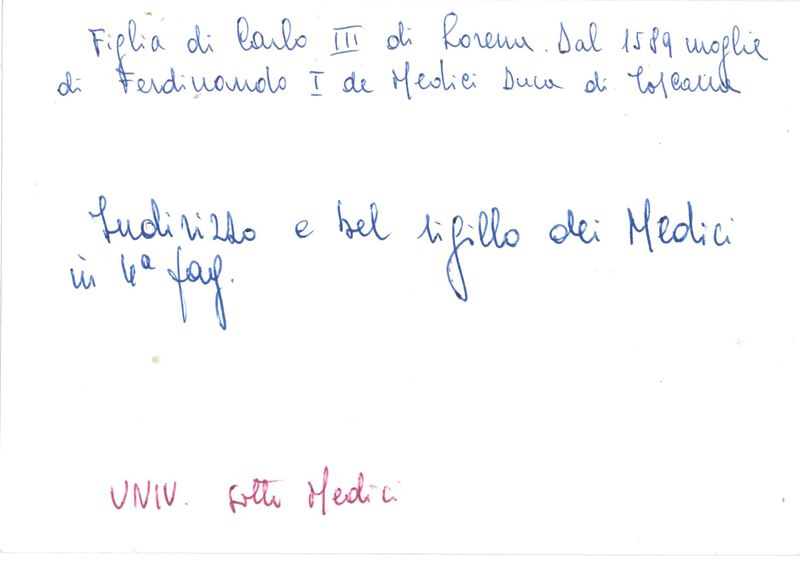 Figlia di Carlo III di Lorena. Dal 1589 moglie
di Ferdinando I de Medici Duca di Toscana
Indirizzo e bel sigillo dei Medici
in 4a pag.
UNIV. sotto Medici